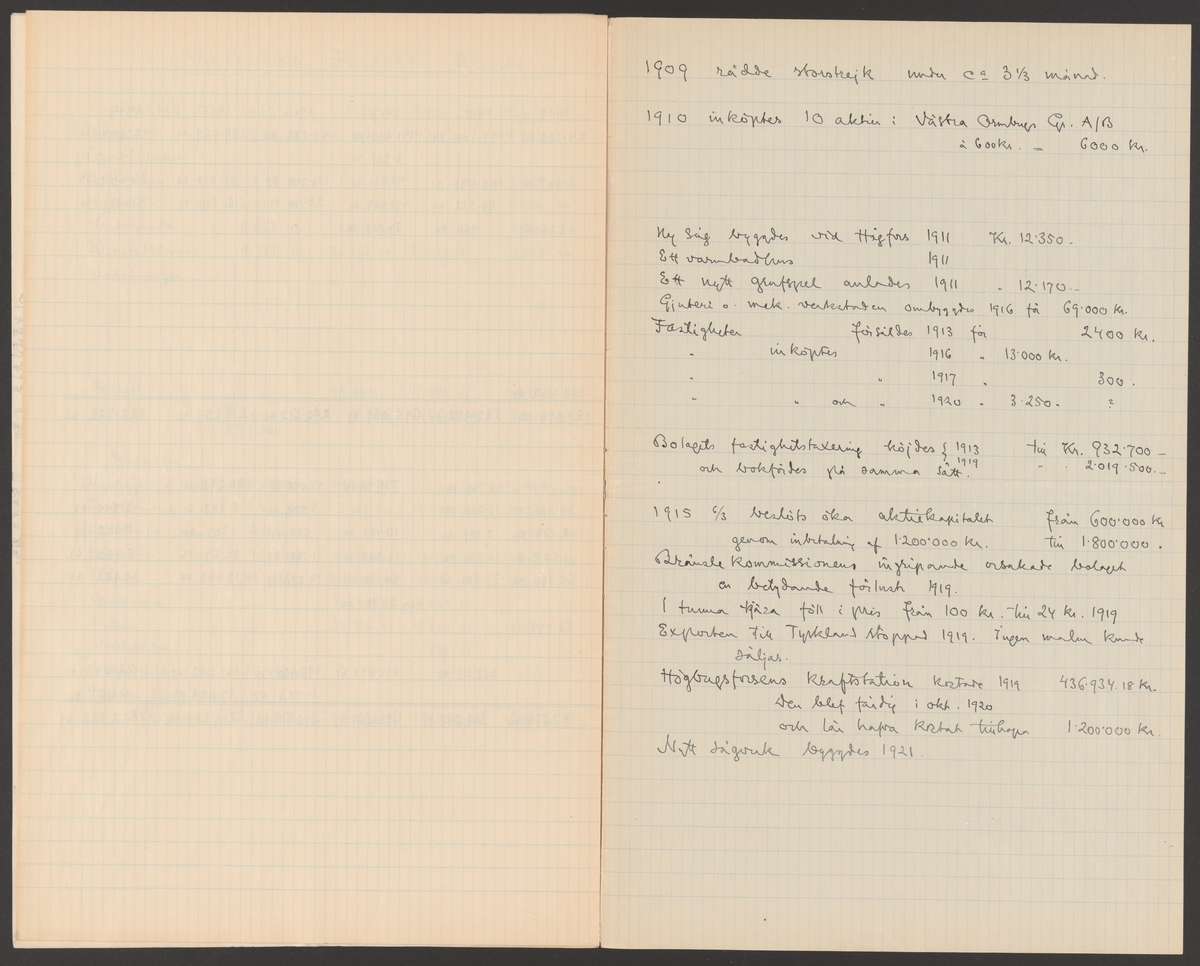 1909 rådde storstrejk under ca 3 1/3 månad.
1910 inköptes 10 aktier i Västra Ormbergs Gr. A/B
à 600 kr. = 6000 Kr.
Ny såg byggdes vid Högfors 1911 Kr. 12.350.-
Ett varmbadhus 1911
Ett nytt grufspel anlades 1911 " 12.170.-
Gjuteri o. mek. verkstaden ombyggdes 1916 för 69.000 Kr.
Fastigheter försåldes 1913 för 2400 Kr.
" inköptes 1916 " 13.000 Kr.
" " 1917 " 300.
" " och " 1920 " 3.250.- ?
Bolagets fastighetstaxering höjdes { 1913 till Kr. 932.700 -
och bokfördes på samma sätt. 1919 " " 2.019.500.-
1915 6/3 beslöts öka aktiekapitalet från 600.000 Kr
genom inbetalning af 1.200.000 Kr. till 1.800.000.
Bränslekommissionens ingripande orsakade bolaget
en betydande förlust 1919.
1 tunna tjära föll i pris från 100 kr. till 24 kr. 1919
Exporten till Tyskland stoppad 1919. Ingen malm kunde
säljas.
Högbyforsens kraftstation kostade 1919 436.934.18 Kr.
Den blef färdig i okt. 1920
och lär hafva kostat tillhopa 1.200.000 Kr.
Nytt sågverk byggdes 1921.